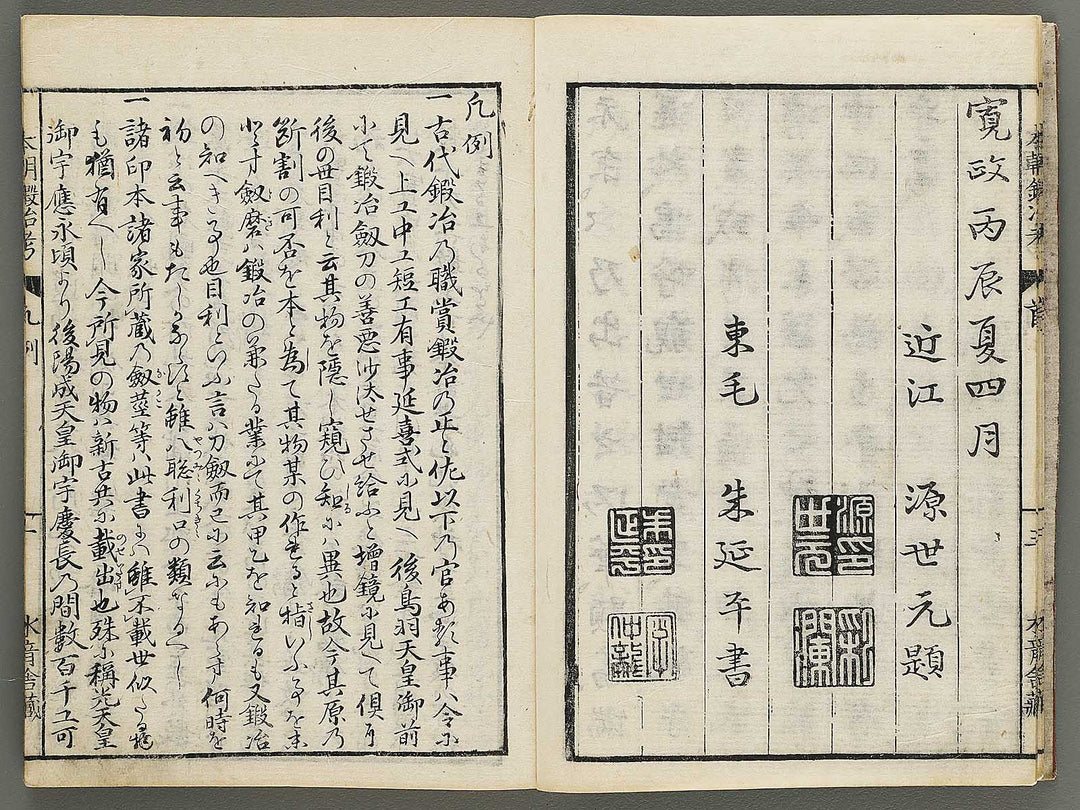 寛政丙辰夏四月
近江 源世元題
東毛 朱延平書
凡例
一古代鍛冶乃職賞鍛冶乃正佐以下乃官あ事ハ令ニ
見へ上工中工短工有事延喜式ニ見へ 後鳥羽天皇御前
にて鍛冶劔刀の善悪沙汰せさせ給ふと増鏡に見へて倶に
後の世目利と云其物を隠し窺ひ知にハ異也故今其原乃
断割の可否を本と為て其物某の作と指いふ事を末
とす劔磨ハ鍛冶の業にて其甲乙を知るも又鍛冶
の知へき事也目利といふ言ハ刀劔而已に云にもあらす何時を
初と云事もたしかならすと雖八聡利口の類なるへし
一諸印本諸家所蔵乃劔莖等ハ此書にハ雖不載世似たる
も猶有へし今所見の物ハ新古共に載出也殊に稱光天皇
御宇應永頃より後陽成天皇御宇慶長乃間数百千工可
本朝鍛冶考 凡例 一 水音舎蔵